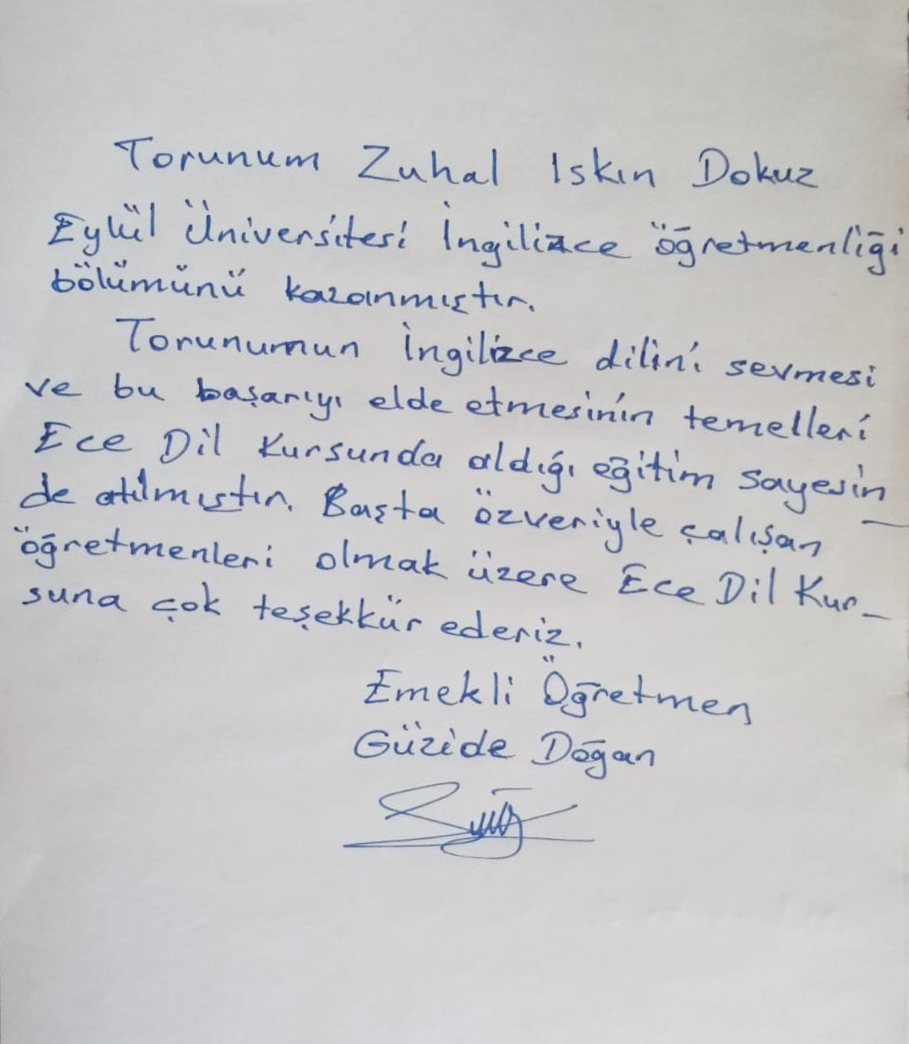 Torunum Zuhal Iskın Dokuz
Eylül Üniversitesi İngilizce öğretmenliği
bölümünü kazanmıştır.
Torunumun İngilizce dilini sevmesi
ve bu başarıyı elde etmesinin temelleri
Ece Dil Kursunda aldığı eğitim sayesin
de atılmıştır. Başta özveriyle çalışan
öğretmenleri olmak üzere Ece Dil Kur-
suna çok teşekkür ederiz.
Emekli Öğretmen
Güzide Doğan